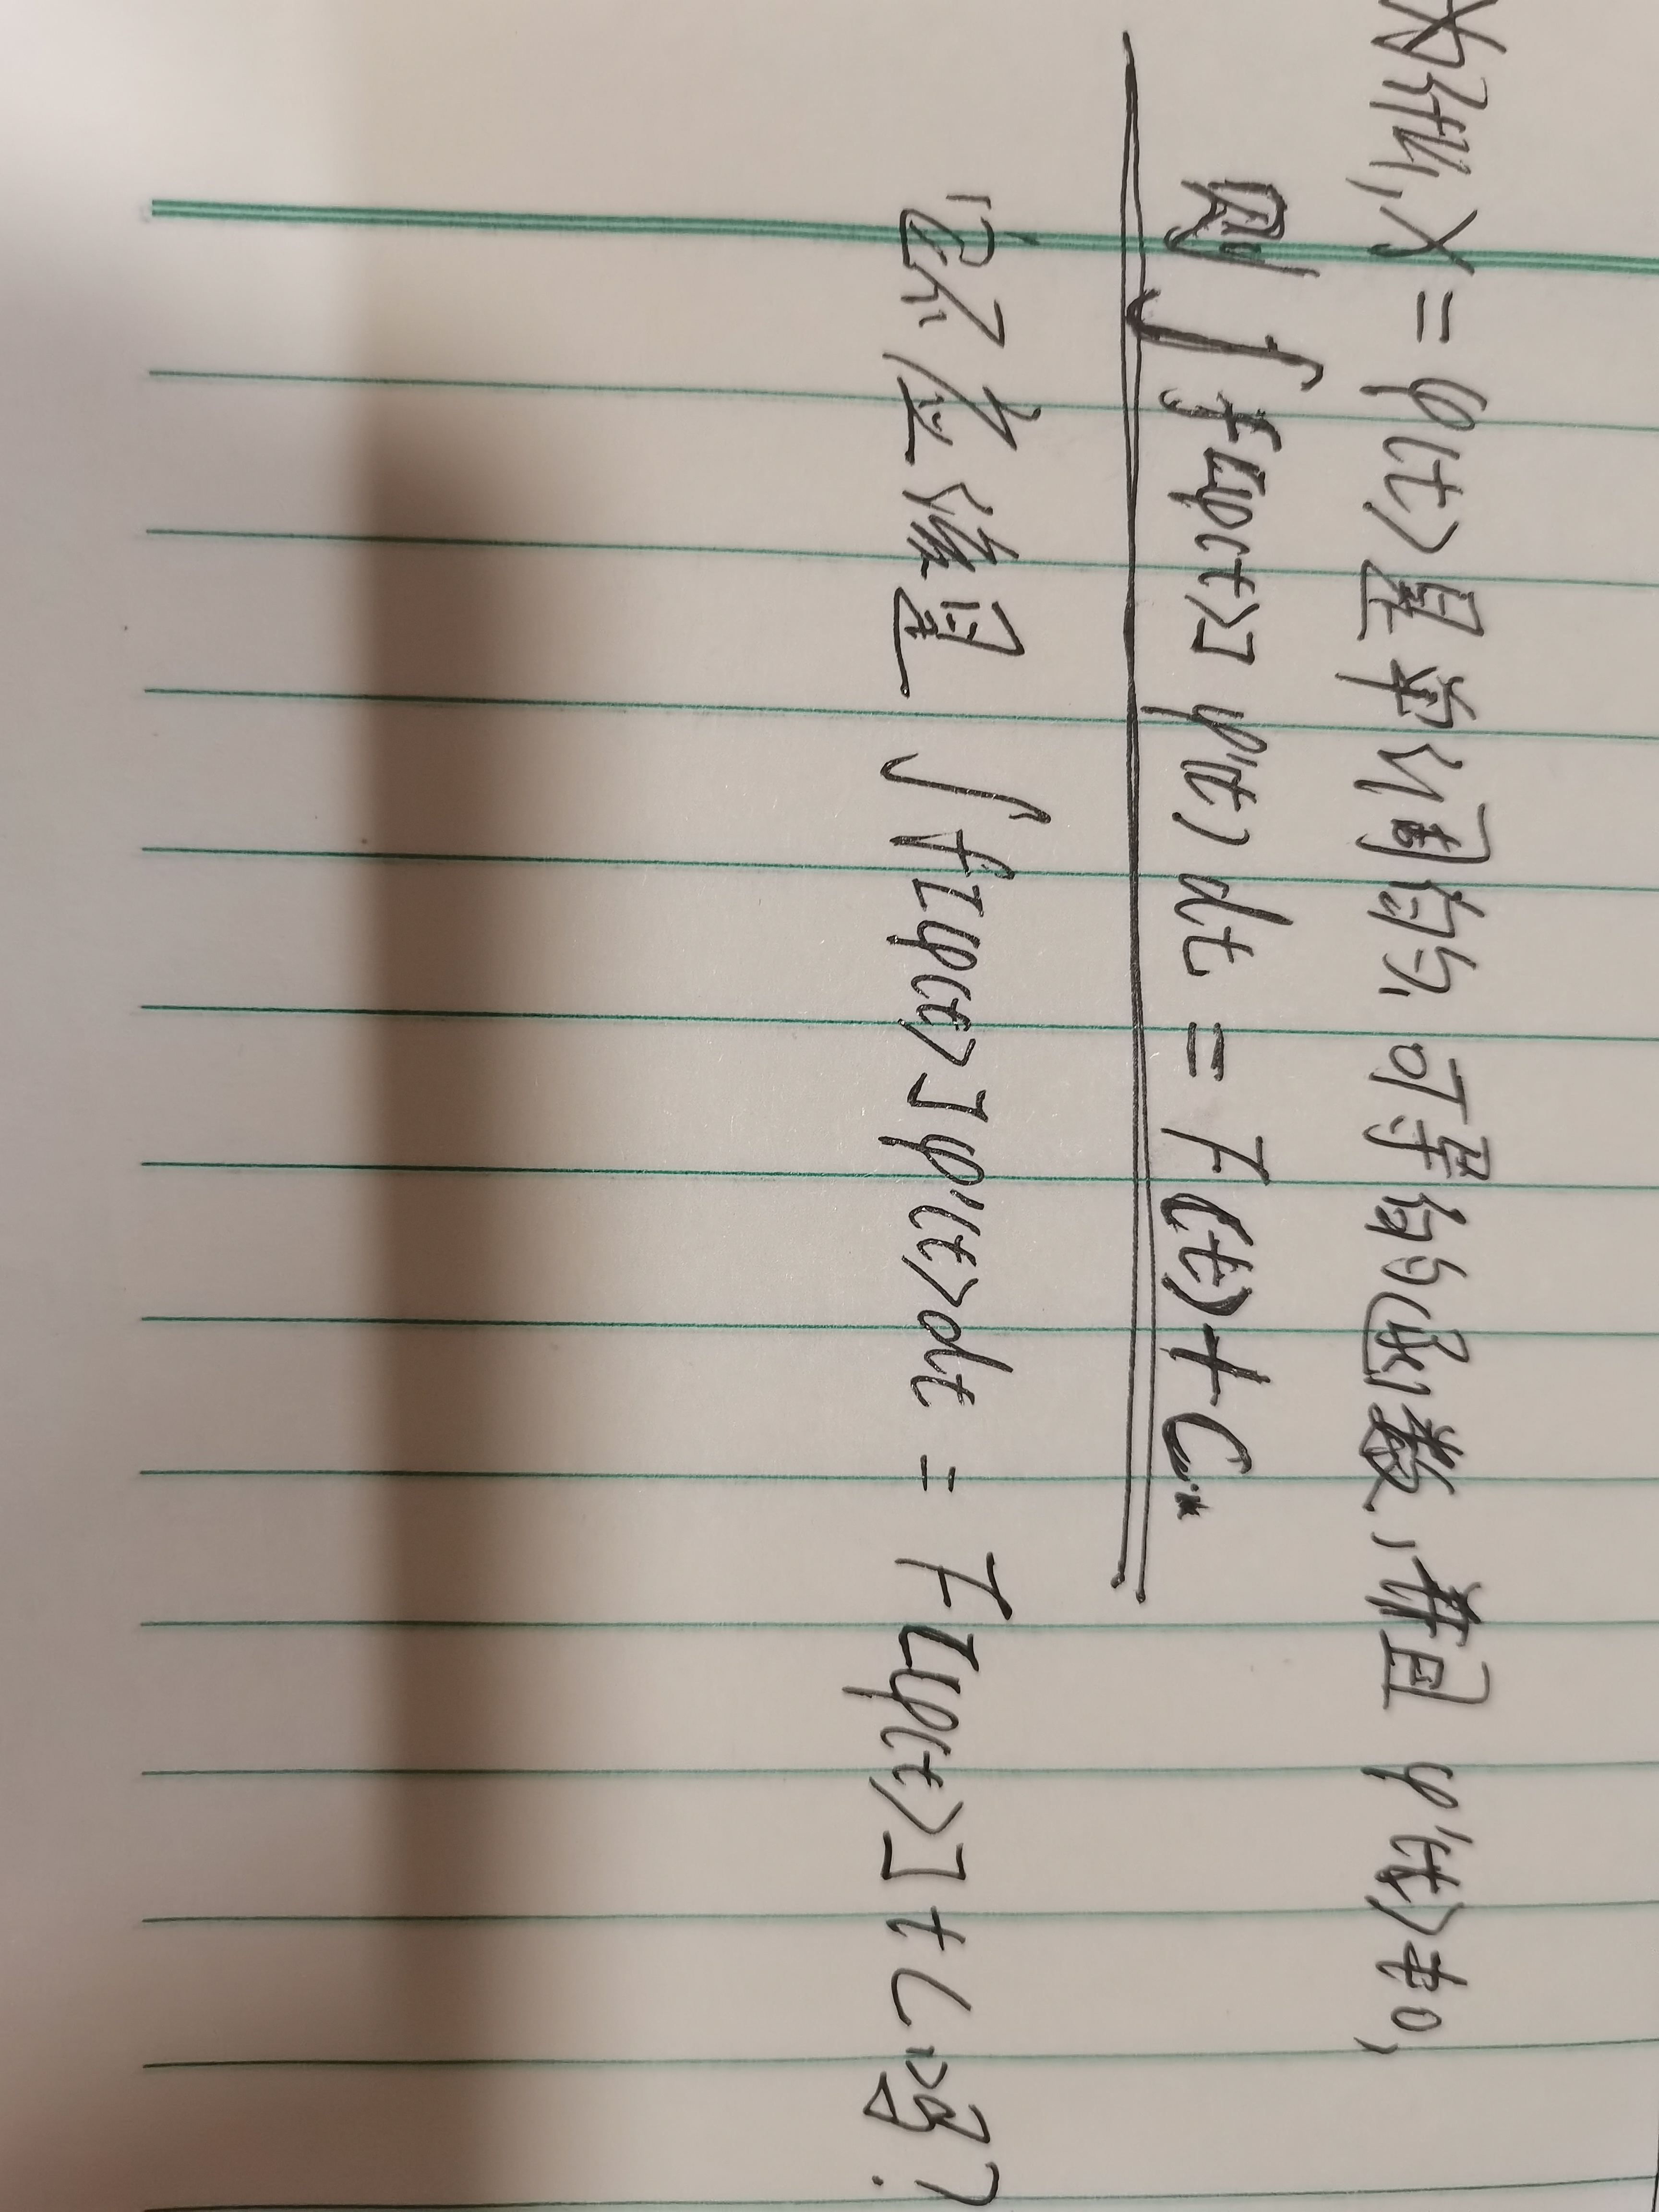 为什么,x=φ(t)是单调的、可导的函数,并且φ'(t)≠0,
则∫f[φ(t)]φ'(t)dt=F(t)+C.
它不应该是∫f[φ(t)]φ'(t)dt=F[φ(t)]+C吗?